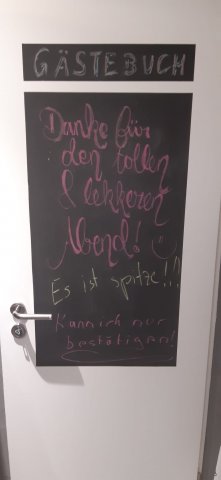 GÄSTEBUCH
Danke für
den tollen
& lekkeren
Abend!
Es ist spitze!!!
Kann ich nur
bestätigen!